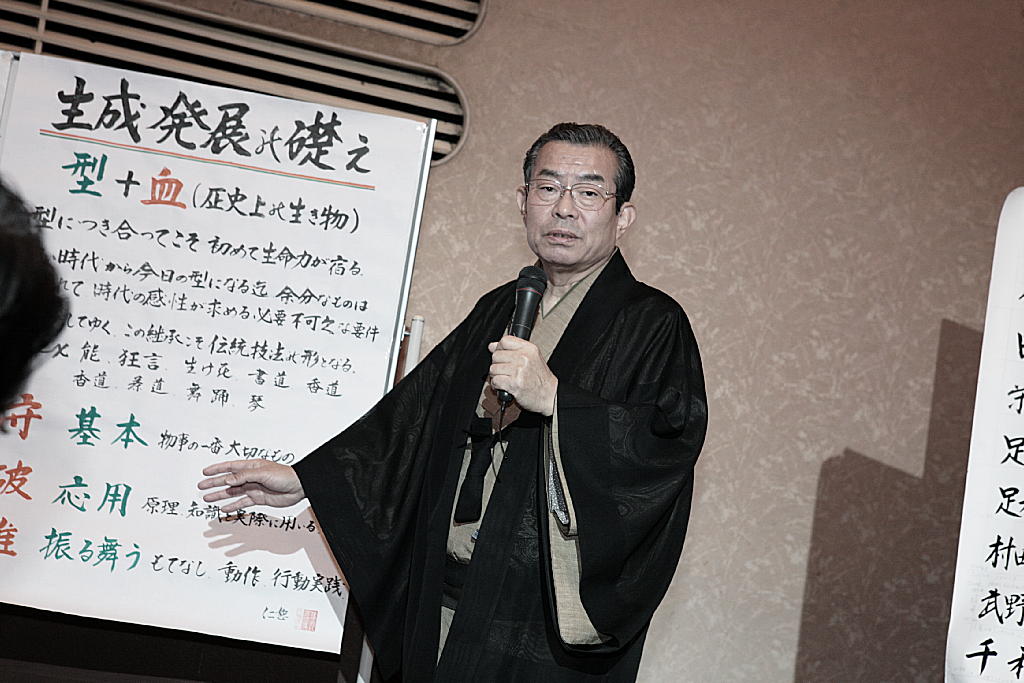 生成発展の礎え
型＋血(歴史上の生き物)
型につき合ってこそ 初めて生命力が宿る.
時代から今日の型になる迄 余分なものは
れて 時代の感性が求める.必要不可欠な要件
れてゆく.この継承こそ伝統技法の形となる.
能.狂言.生け花.書道.香道
香道.柔道.舞踊.琴
守 基本 物事の一番大切なもの
破 応用 原理.知識を実際に用いる
振る舞う もてなし.動作.行動実践
仁悠
足
足
村田
武野
千